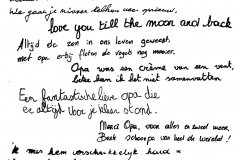 We gaan je missen telkens weer opnieuw.
love you till the moon and back
Altijd de zon in ons leven geweest,
met opa erbij floten de vogels nog mooier.
Opa was een crème van een vent,
beter kan ik het niet samenvatten
Een fantastische lieve opa die
er altijd voor je klaar stond.
Merci Opa, voor alles en zoveel meer
Beste Opa van heel de wereld!
Ik mis hem verschrikkelijk hard